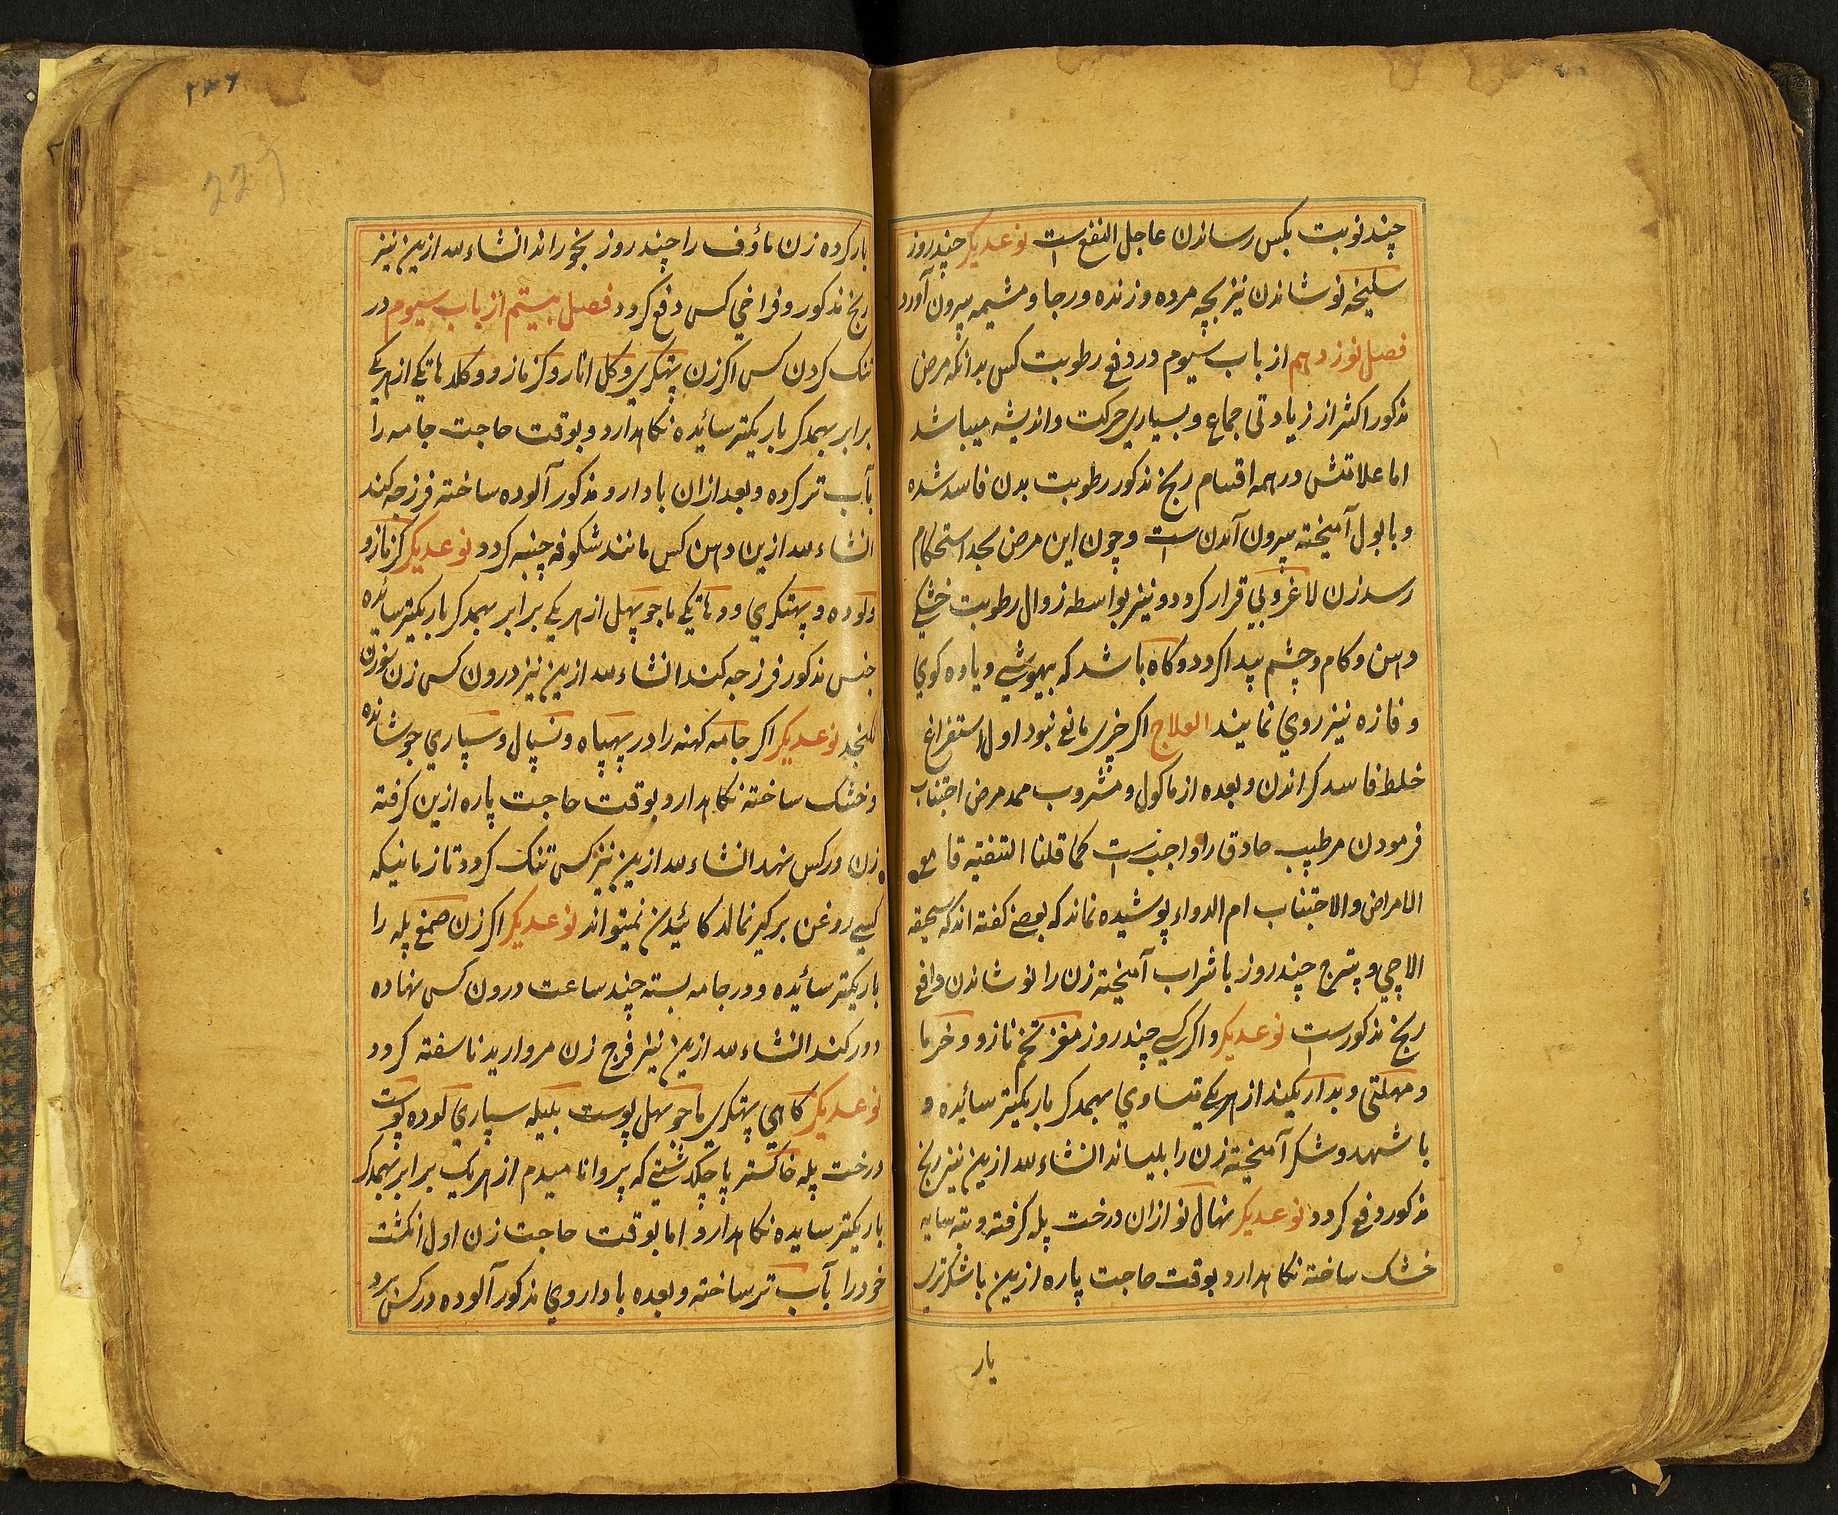 چند نوبت بکس رساندن عاجل النفع است نوعدیکر چند روز
سلیخه نوشاندن نیز بچه مرده و زنده و رجا و مشیمه بیرون آورد
فصل نوزدهم از باب سیوم در دفع رطوبت کس بدانکه مرض
مذکور اکثر از زیادتی جماع و بسیاری حرکت و اندیشه میباشد
اما علامتش در همه اقسام رنج مذکور رطوبت بدن فاسد شده
و با بول آمیخته بیرون آمدن است و چون این مرض بحد استحکام
رسد زن لاغر و بی قرار کردد و نیز بواسطه زوال رطوبت خشکی
دهن و کام و چشم پیدا کردد و کاه باشد که بیهوشی و یاوه کوی
و فازه نیز روی نمایند العلاج اکر چیزی مانع نبود اول استفراغ
خلط فاسد کراندن و بعده از ماکول و مشروب ممد مرض اجتناب
فرمودن مر طبیب حاذق را واجبست کما قلنا التنقیه قامعه
الامراض والاجتناب ام الدواء پوشیده نماند که بعضی کفته اند که سحیقه
الاچی و پترج چند روز با شراب آمیخته زن را نوشاندن دافع
رنج مذکورست نوعدیکر و اکر کسی چند روز مغز تخم نازو و خرما
و مهلتی و بداریکند از هر یکی متساوی بهمدکر باریکتر سائیده و
با شهد و شکر آمیخته زن را بلیساند انشاء لله ازین نیز رنج
مذکور دفع کردد نوعدیکر نهال نو ازان درخت پله کرفته و بته سایه
خشک ساخته نکاهدارد بوقت حاجت پاره ازین با شکر تری
یار
۲۲۶
227
بار کرده زن ماؤف را چند روز بخوراند انشاء لله ازین نیز
رنج مذکور و فراخی کس دفع کردد فصل بیستم از باب سیوم در
تنک کردن کس اکر زن پهتکری و کل انار و کزمازو و کلدهاتکی از هر یکی
برابر بهمدکر باریکتر سائیده نکاهدارد و بوقت حاجت جامه را
بآب تر کرده و بعد ازان با دارو مذکور آلوده ساخته فرزجه کند
انشاء لله ازین دهن کس مانند شکوفه چنبه کردد نوعدیکر کزمازو
و لوده و پهتکری و دهاتکی ماجوپهل از هر یکی برابر بهمدکر باریکتر سائیده
جنس مذکور فرزجه کند انشاء لله ازین نیز درون کس زن سوزن
نکنجد نوعدیکر اکر جامه کهنه را در پهپاه و نسپال و سپاری جوشانده
و خشک ساخته نکاهدارد بوقت حاجت پاره ازین کرفته
زن در کس نهد انشاء لله ازین نیز کس تنک کردد تا زمانیکه
کسی روغن بر کیر نمالد کائیدن نمیتواند نوعدیکر اکر زن صمغ پله را
باریکتر سائیده و در جامه بسته چند ساعت درون کس نهاده
دور کند انشاء لله ازین نیز فرج زن مروارید ناسفته کردد
نوعدیکر کاهی پهتکری ماجوپهل پوست بلیله سپاری لوده پوست
درخت پله خاکستر پاچکدشتی که پروانا میدم از هر یک برابر بهمدکر
باریکتر سایده نکاهدارد اما بوقت حاجت زن اول انکشت
خود را بآب تر ساخته و بعده با داروی مذکور آلوده در کس برد